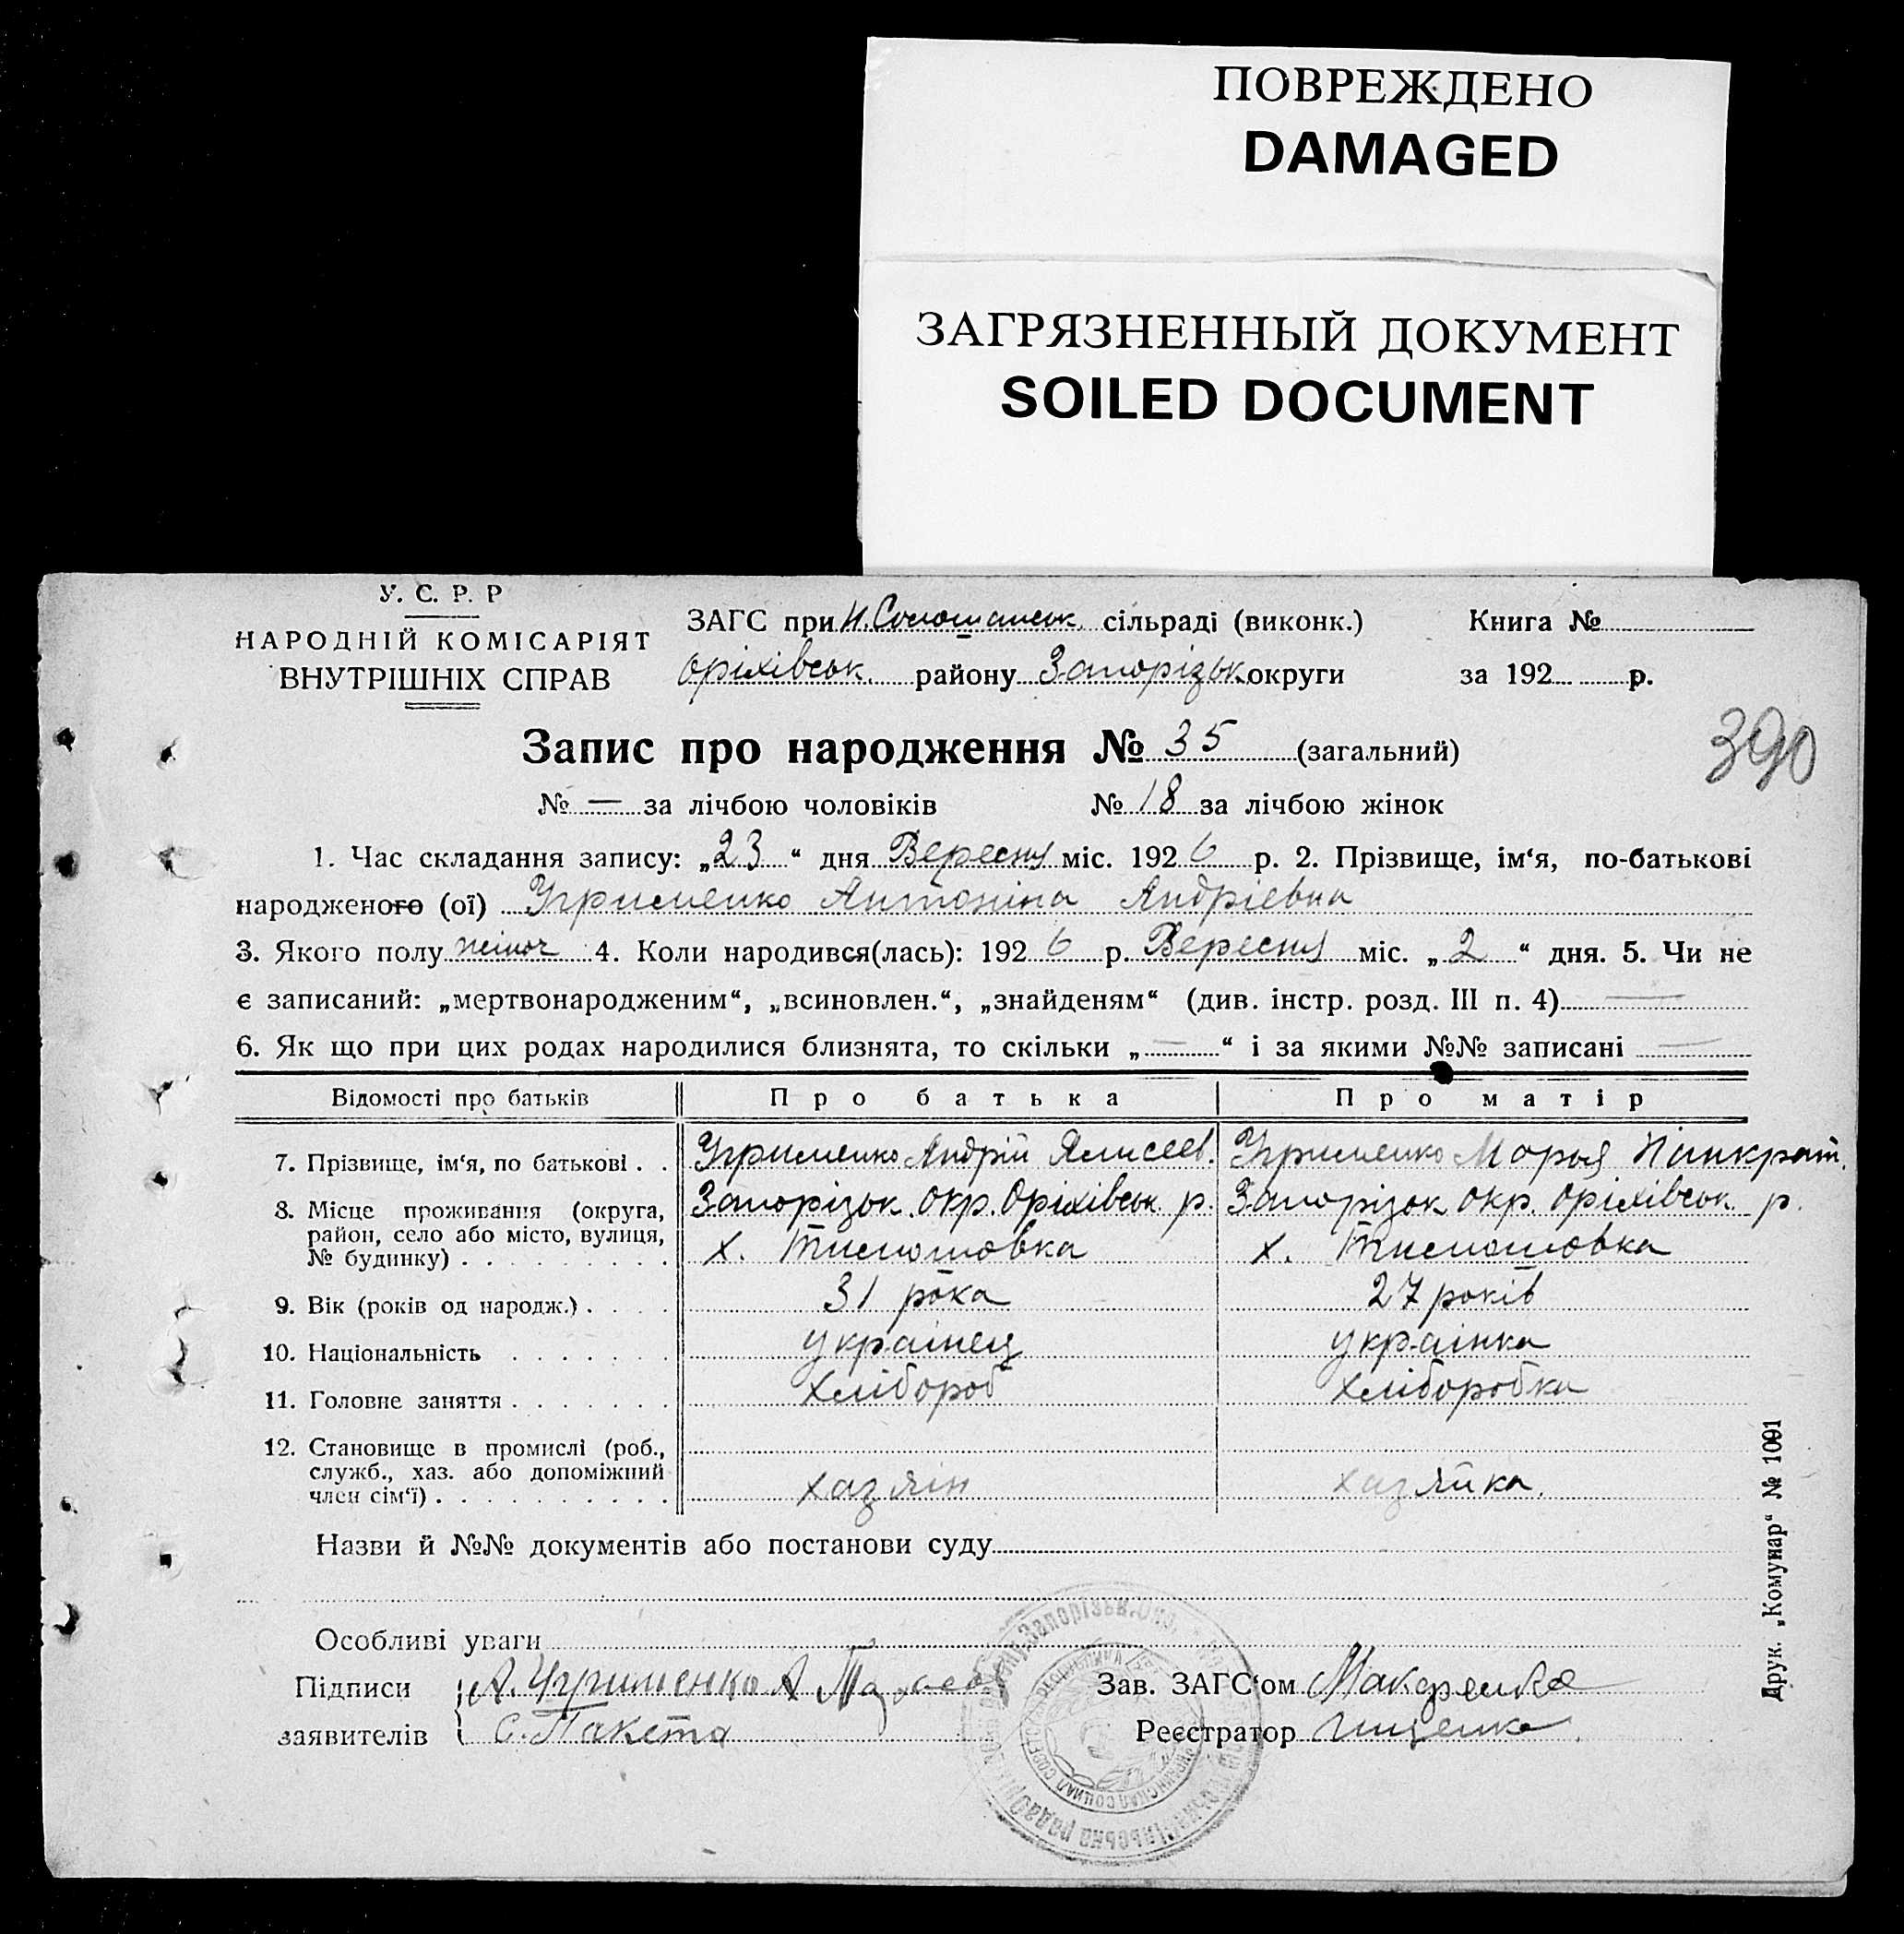 ПОВРЕЖДЕНО
DAMAGED
ЗАГРЯЗНЕННЫЙ ДОКУМЕНТ
SOILED DOCUMENT
У. С. Р. Р
НАРОДНІЙ КОМІСАРІЯТ
ВНУТРІШНІХ СПРАВ
ЗАГС при сільраді (виконк.)
Оріхівськ. району Запорізьк округи
Книга №
за 192 р.
390
Запис про народження № 35 (загальний)
№ — за лічбою чоловіків № 18 за лічбою жінок
1. Час складання запису: „23“ дня Вересня міс. 1926 р. 2. Прізвище, ім‘я, по-батькові
народженого (ої) Угрименко Антоніна Андріевна
3. Якого полу жіноч 4. Коли народився(лась): 1926 р. Вересня міс. „2“ дня. 5. Чи не
є записаний: „мертвонародженим“, „всиновлен.“, „знайденям“ (див. інстр. розд. III п. 4) —
6. Як що при цих родах народилися близнята, то скільки „—“ і за якими №№ записані —
Відомості про батьків Про батька Про матір
7. Прізвище, ім‘я, по батькові . . Угрименко Андрій Угрименко Марья Панкрат.
8. Місце проживання (округа, Запорізьк. окр. Оріхівськ. р. Запорізьк окр. Оріхівськ. р.
район, село або місто, вулиця,
№ будинку) . . . . . . . . . х. Тимошовка х. Тимошовка
9. Вік (років од народж.) . . . . 31 рока 27 років
10. Національність . . . . . . . українец українка
11. Головне заняття . . . . . . . хлібороб хліборобка
12. Становище в промислі (роб.,
служб., хаз. або допоміжний
член сім‘ї) . . . . . . . . . . хазяін хазяйка.
Назви й №№ документів або постанови суду
Особливі уваги
Підписи А. Угрименко А
заявителів С. Пакета
Зав. ЗАГС‘ом Макаренко
Реєстратор Гищенко
Друк. „Комунар“ № 1091